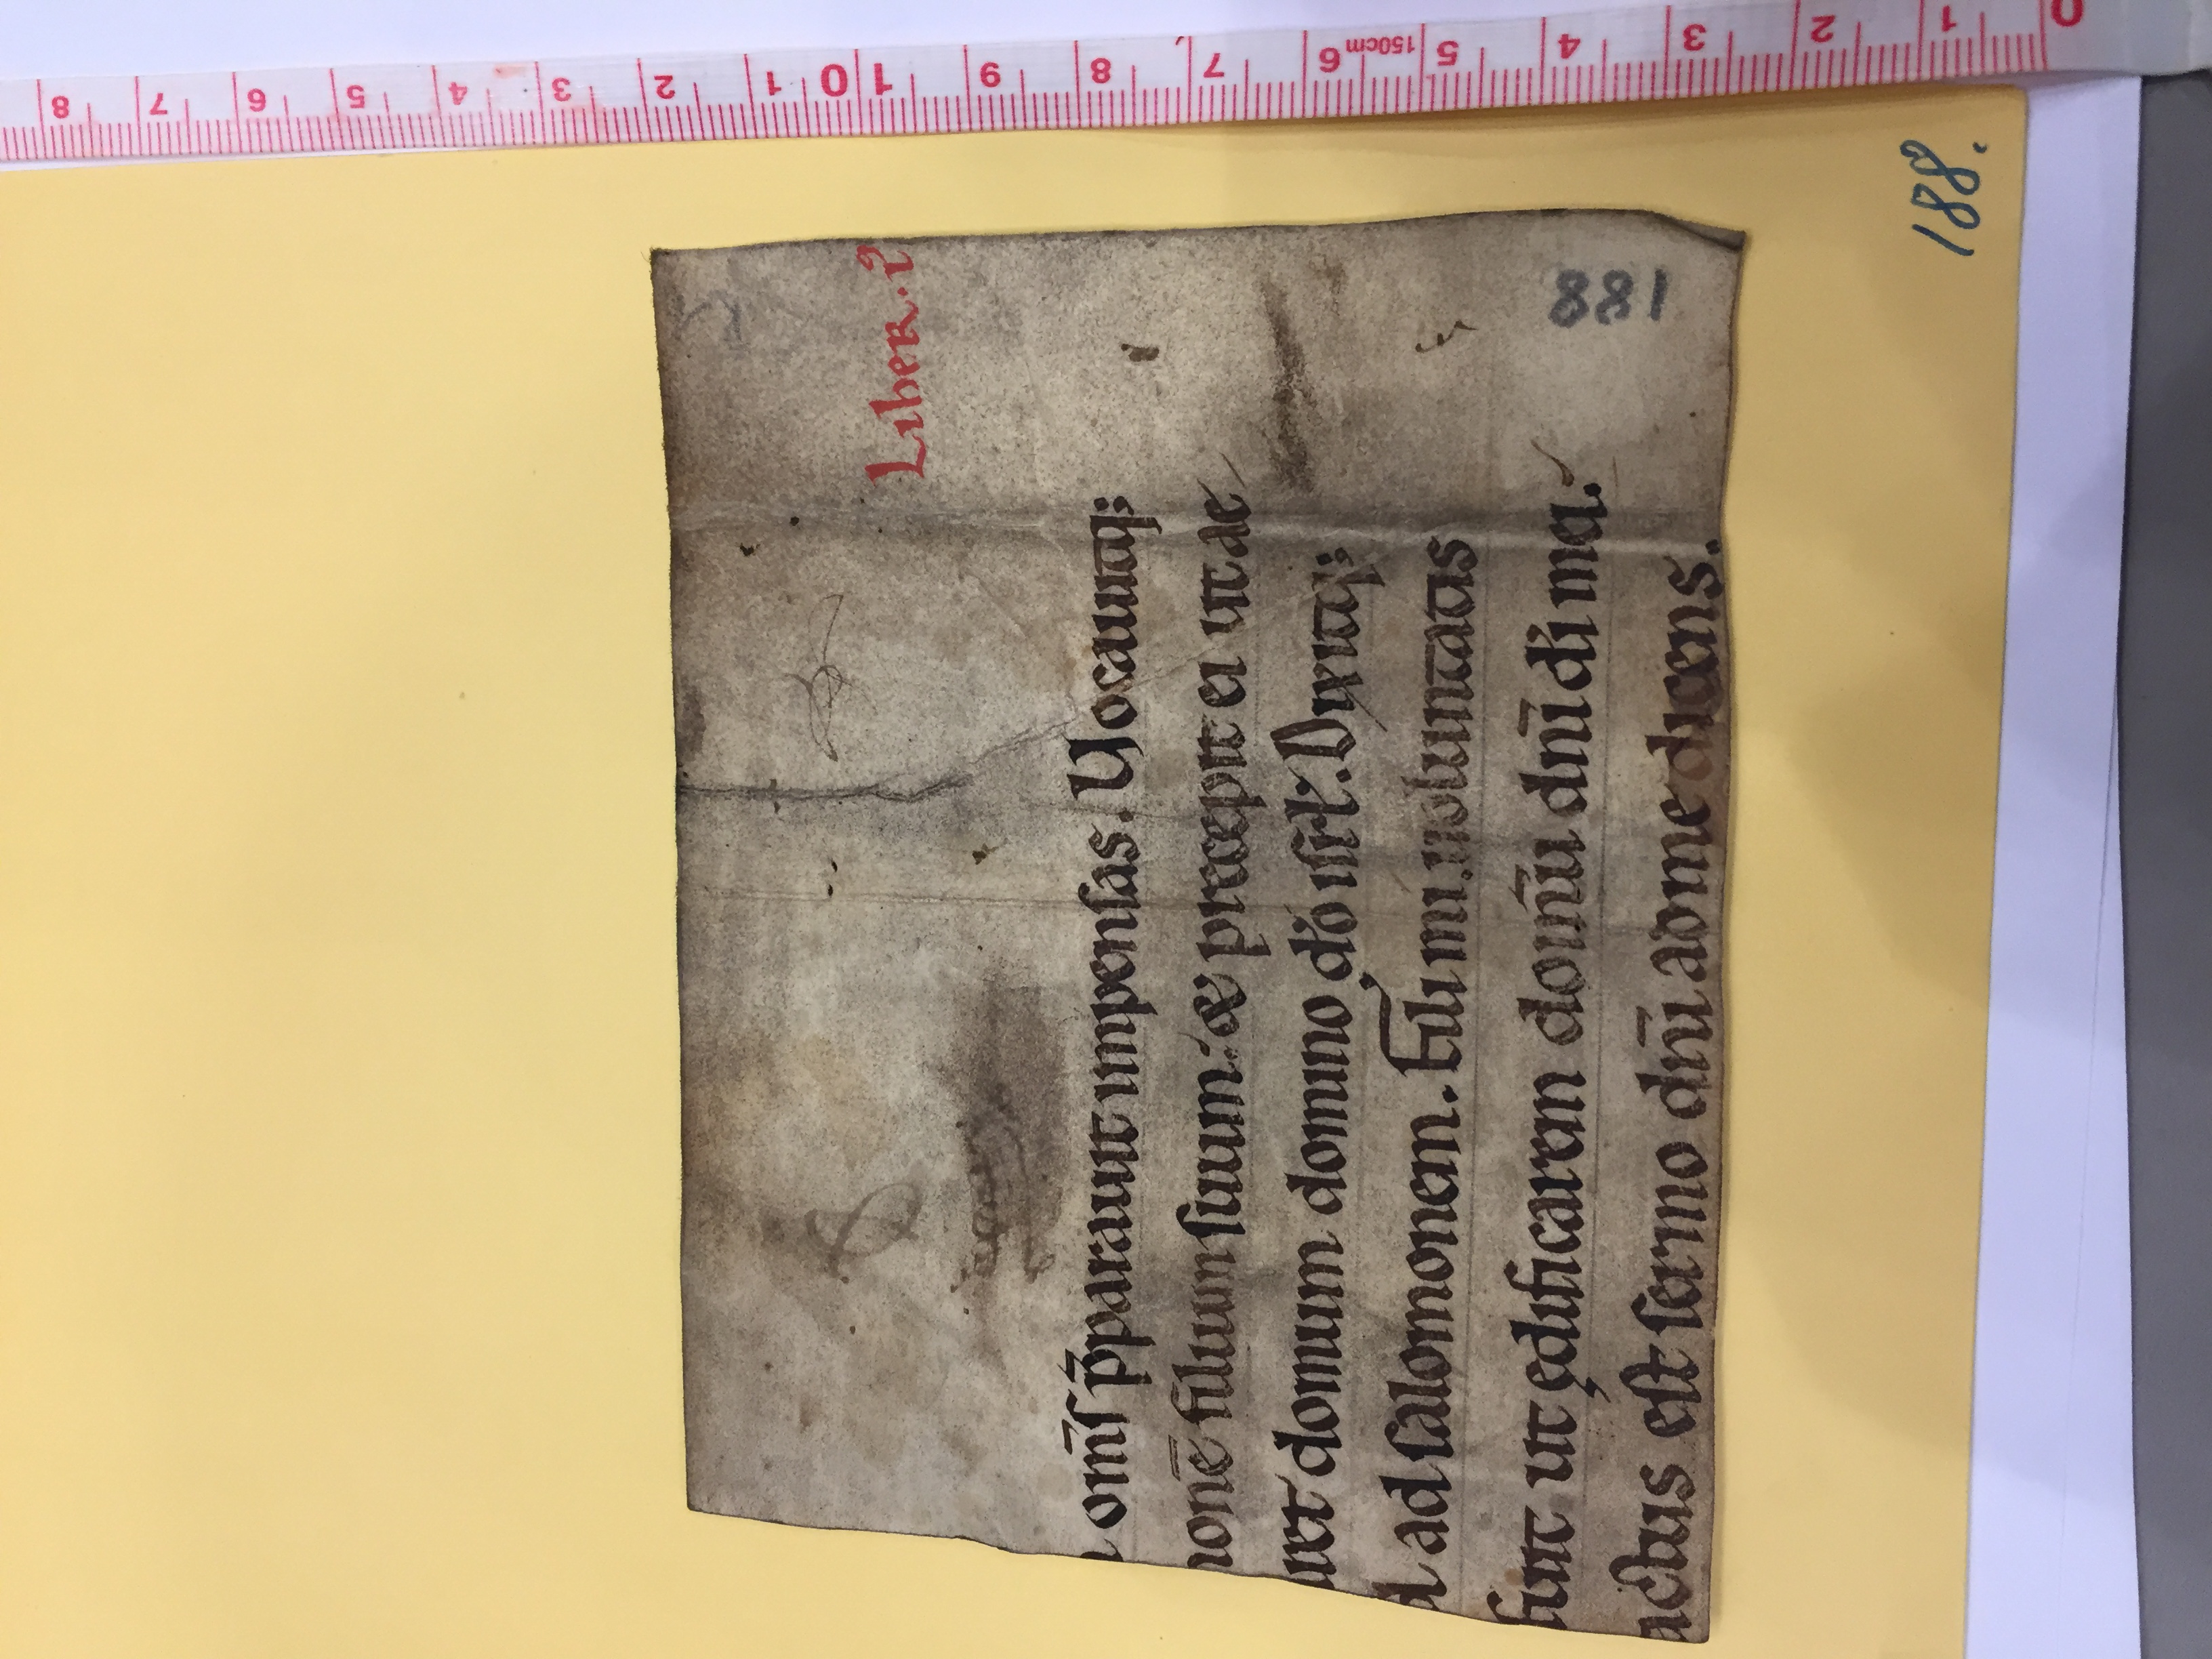 Liber. i⁹
om̄ſ p̄parauit impenſas. Uocauitq;
nonē filium ſuum: & precepit ei ut ae
uet domum domino d̕o iſrl̕. Dixitq;
d ad ſalomonem. Fili mi uoluntatis
fuit ut ędificarem domū dn̄i d̕i mei.
actus eſt ſermo dn̄i ad me dicens.
188
188.
8
7
6
5
4
3
2
1
10
9
8
7
6
150cm
5
4
3
2
1
0